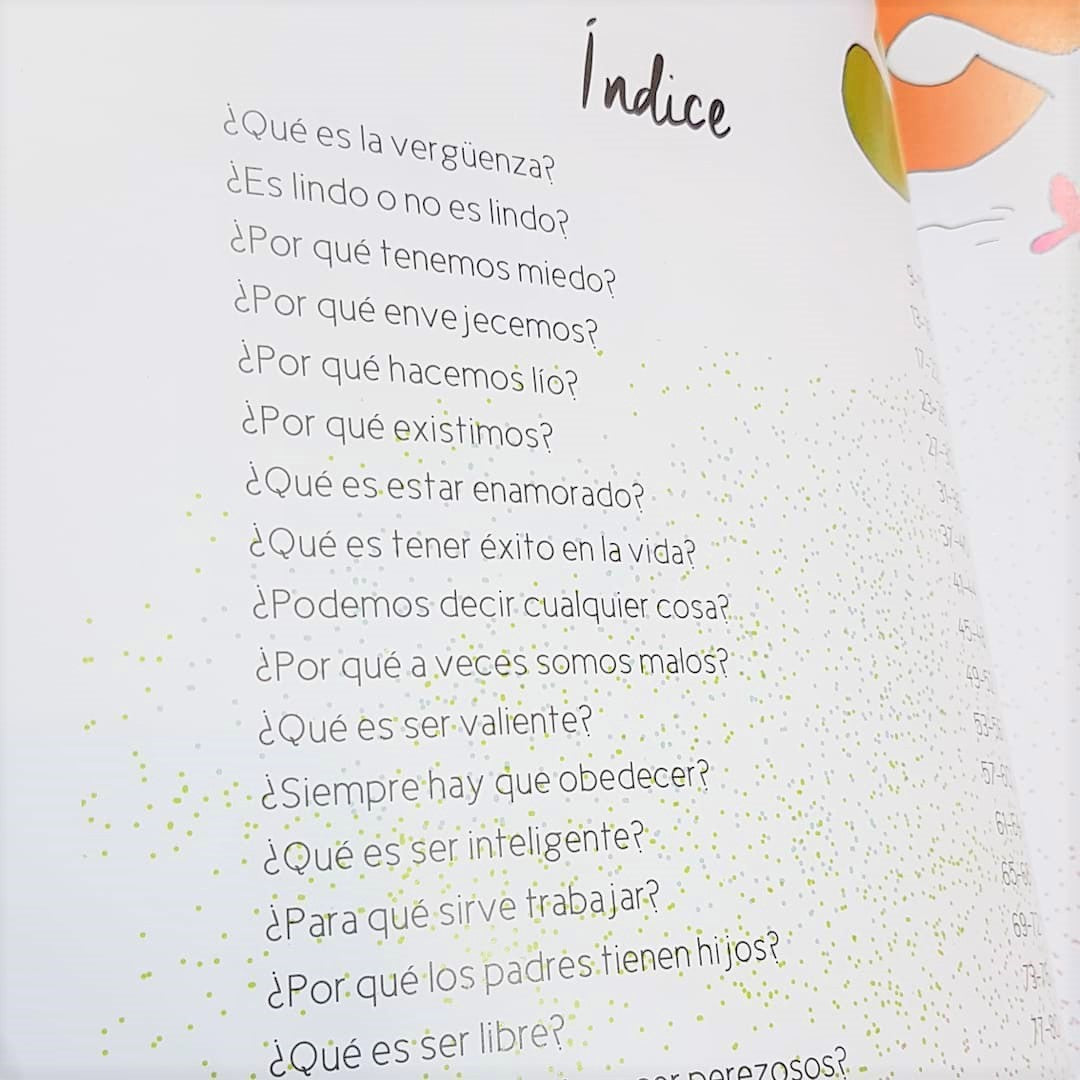 Índice
¿Qué es la vergüenza?
¿Es lindo o no es lindo?
¿Por qué tenemos miedo?
¿Por qué envejecemos?
¿Por qué hacemos lío?
¿Por qué existimos?
¿Qué es estar enamorado?
¿Qué es tener éxito en la vida?
¿Podemos decir cualquier cosa?
¿Por qué a veces somos malos?
¿Qué es ser valiente?
¿Siempre hay que obedecer?
¿Qué es ser inteligente?
¿Para qué sirve trabajar?
¿Por qué los padres tienen hijos?
¿Qué es ser libre?
perezosos?